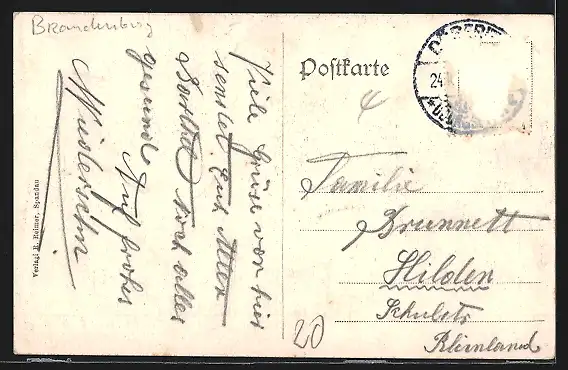 Brandenburg
Viele Grüße von hier
sendet Euch Allen
noch alles
gesund
Auf frohes
Wiedersehn
Verlag: H. Reimer, Spandau
Postkarte
DÖBERITZ
24
4
Familie
Brunnett
Hilden
Schulstr
Rheinland
20